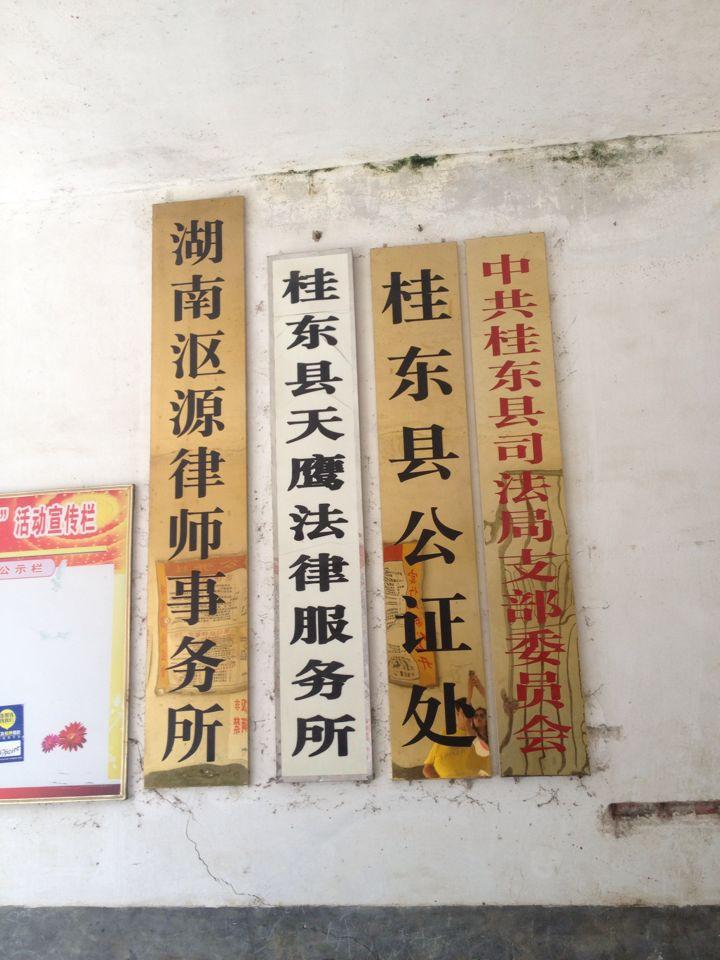 湖南沤源律师事务所
桂东县天鹰法律服务所
桂东县公证处
中共桂东县司法局支部委员会
”活动宣传栏
公示栏